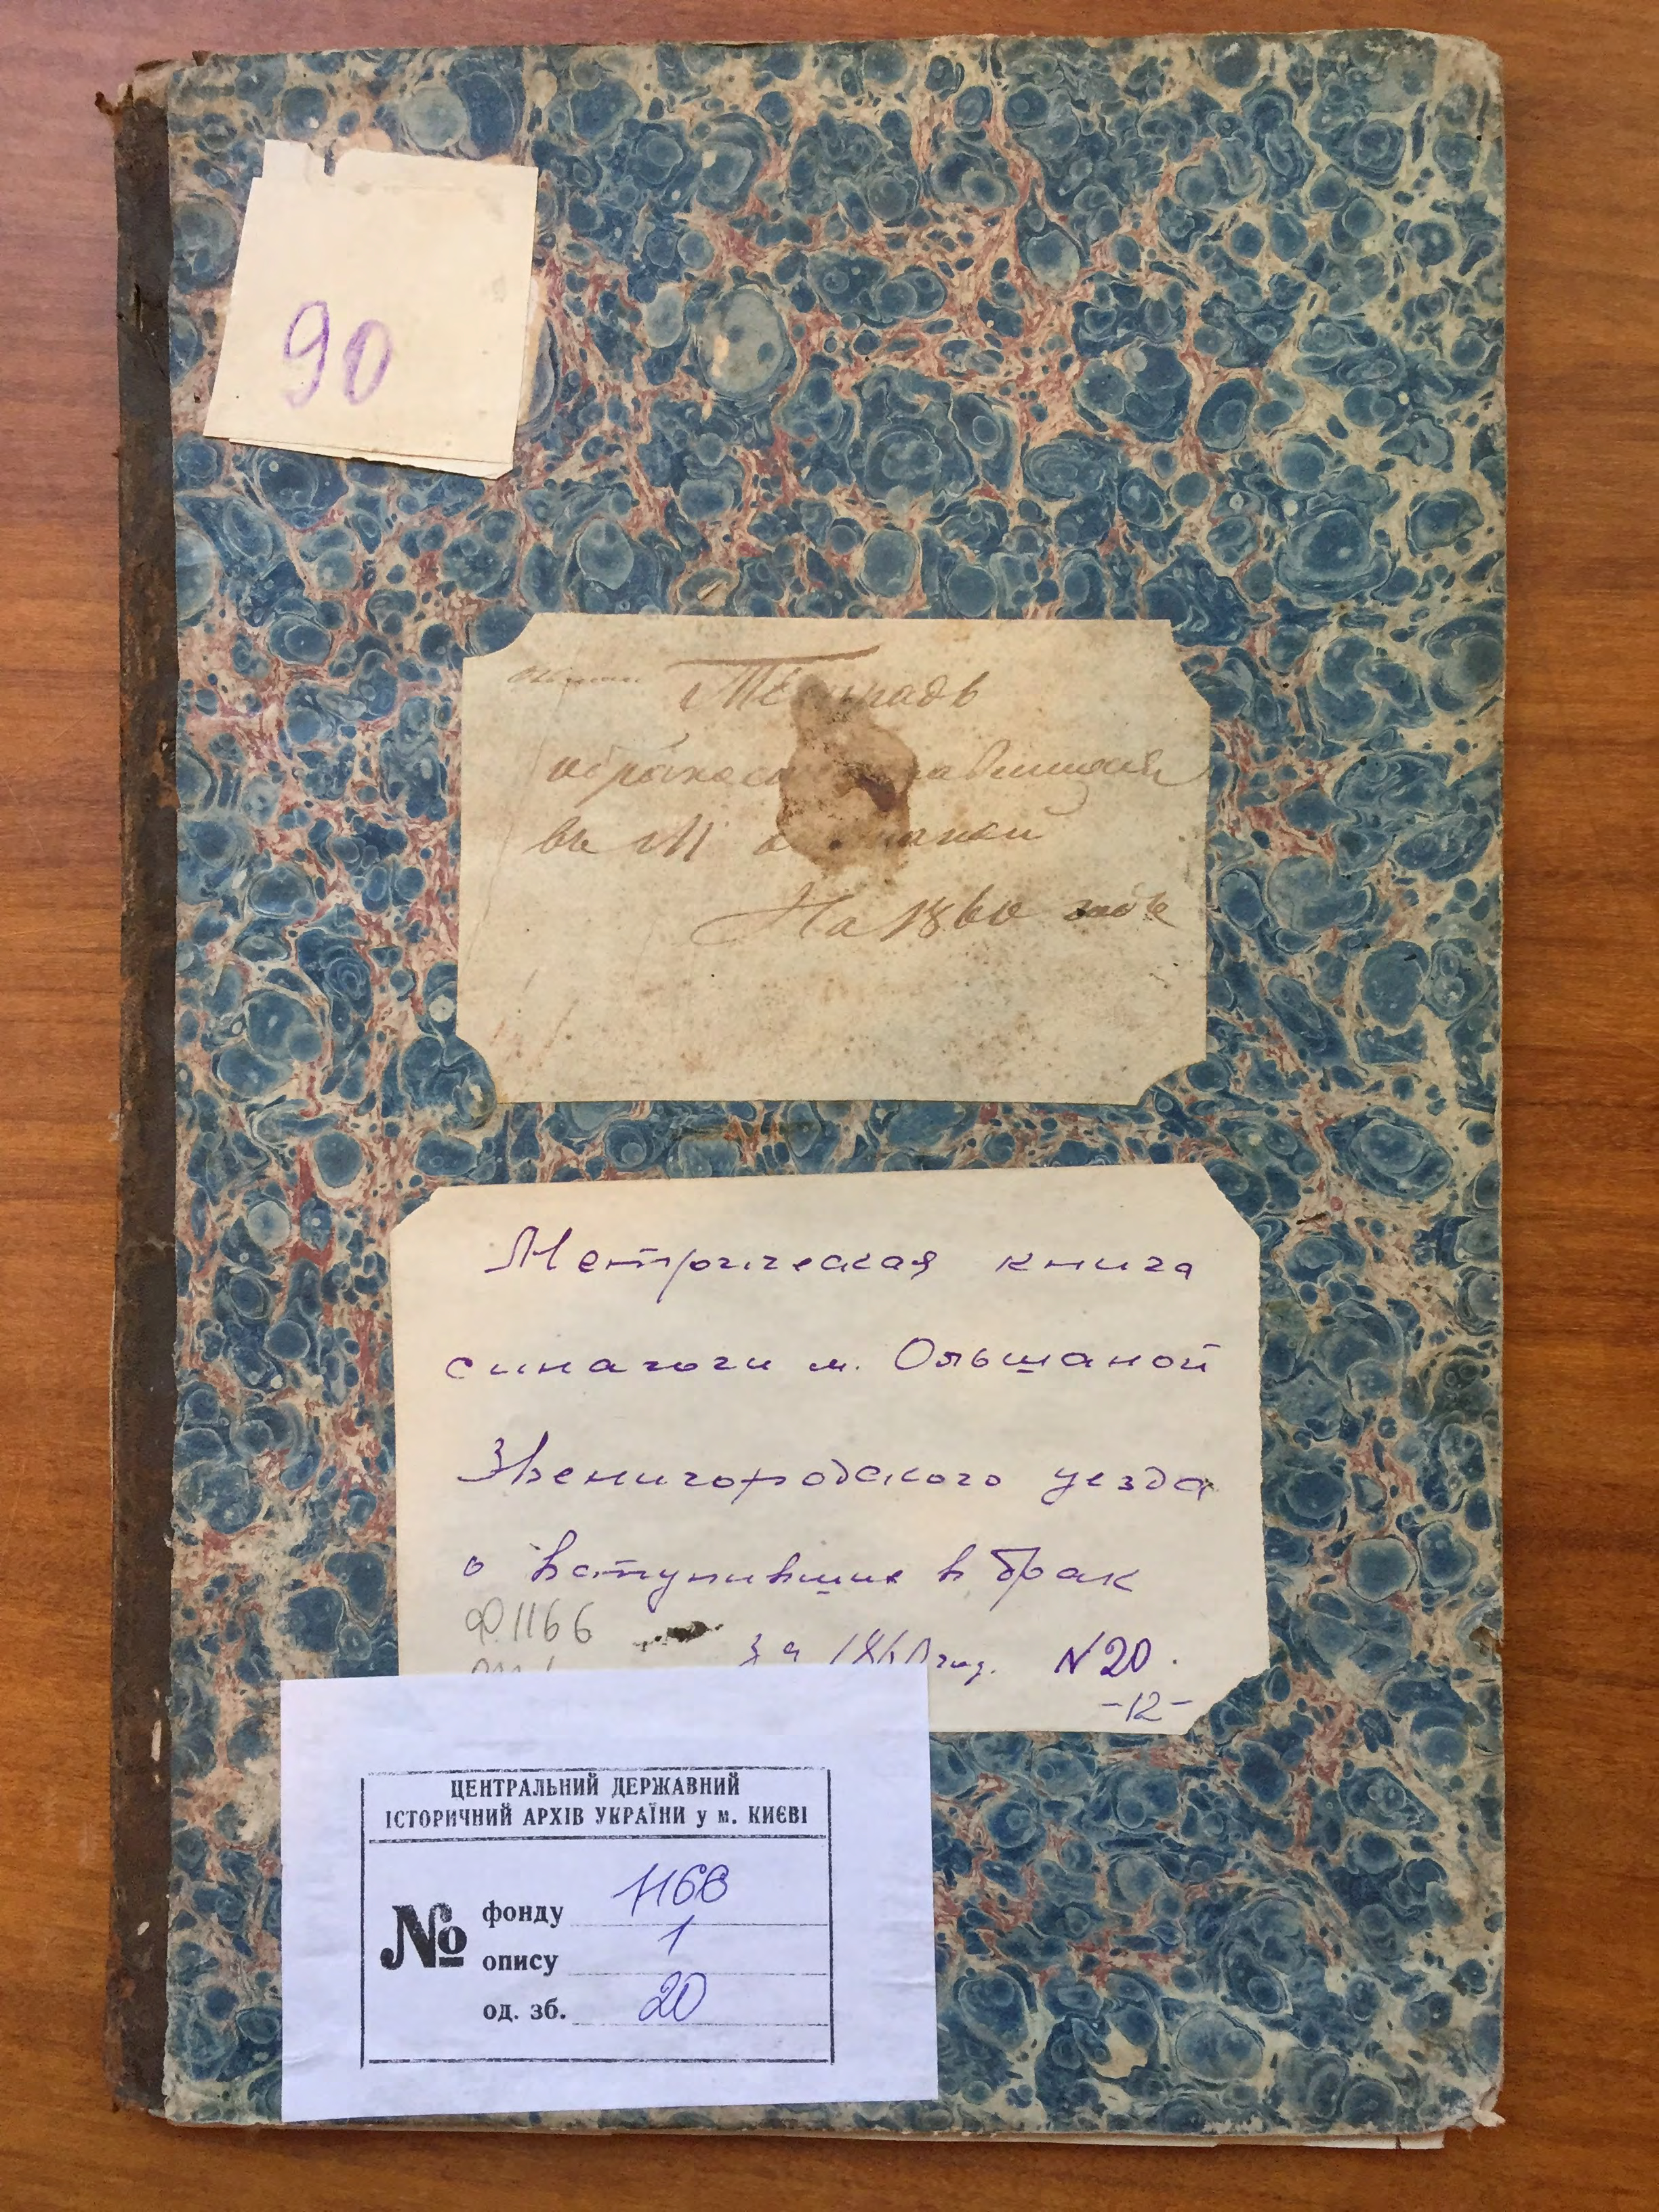 90
Тетрадь
въ М
На 1860 годъ
Метрическая книга
синагоги м. Ольшаной
Звенигородского уезда
о вступивших в брак
Ф. 1166
за 1860 год. N 20.
-12-
ЦЕНТРАЛЬНИЙ ДЕРЖАВНИЙ
ІСТОРИЧНИЙ АРХІВ УКРАЇНИ у м. КИЄВІ
№
фонду 1166
опису 1
од. зб. 20